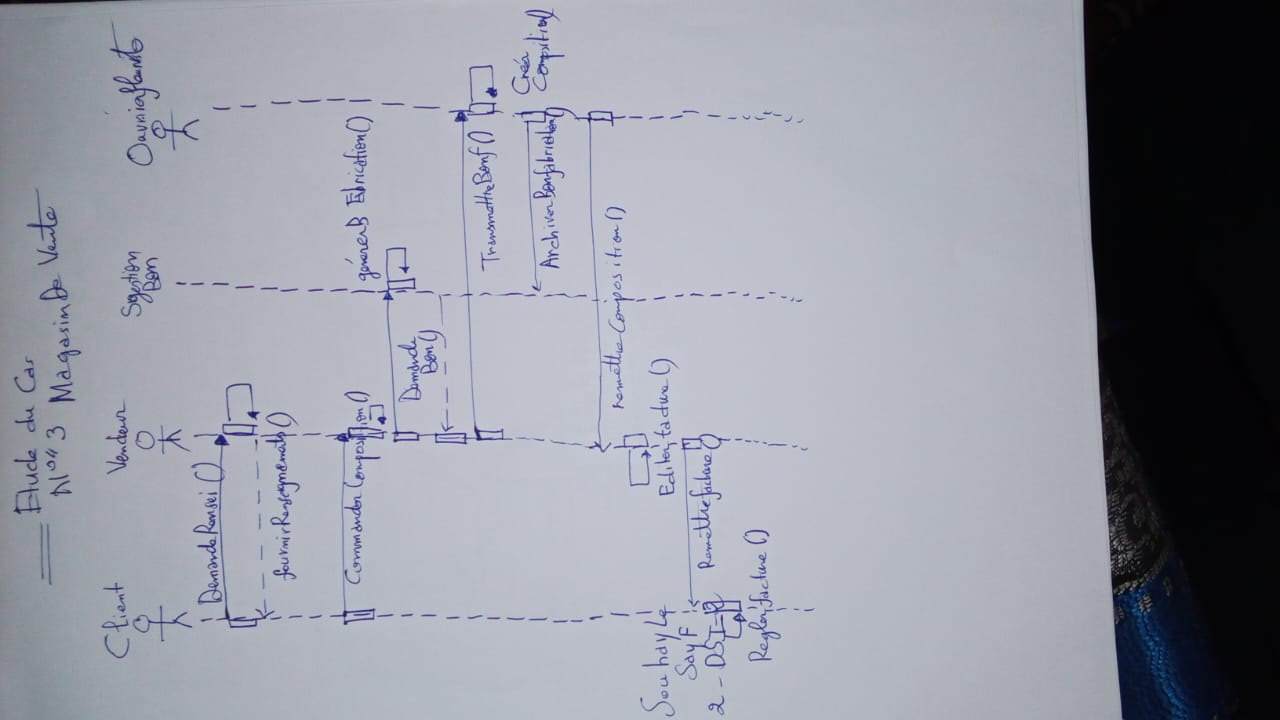 Etude du Cas
N°4 3 Magasin De Vente
Client
Vendeur
Sigestion
Bon
DemandeRensei()
fournirRenseignements()
CommanderComposition()
Demande
Bon()
générerB Fabrication()
TransmettreBonf()
Créa
Composition()
ArchiverBonfabrication()
remettreComposition()
Editerfacture()
Remettrefacture()
Reglerfacture()
Souhayla
Sayf
2-DSI-2